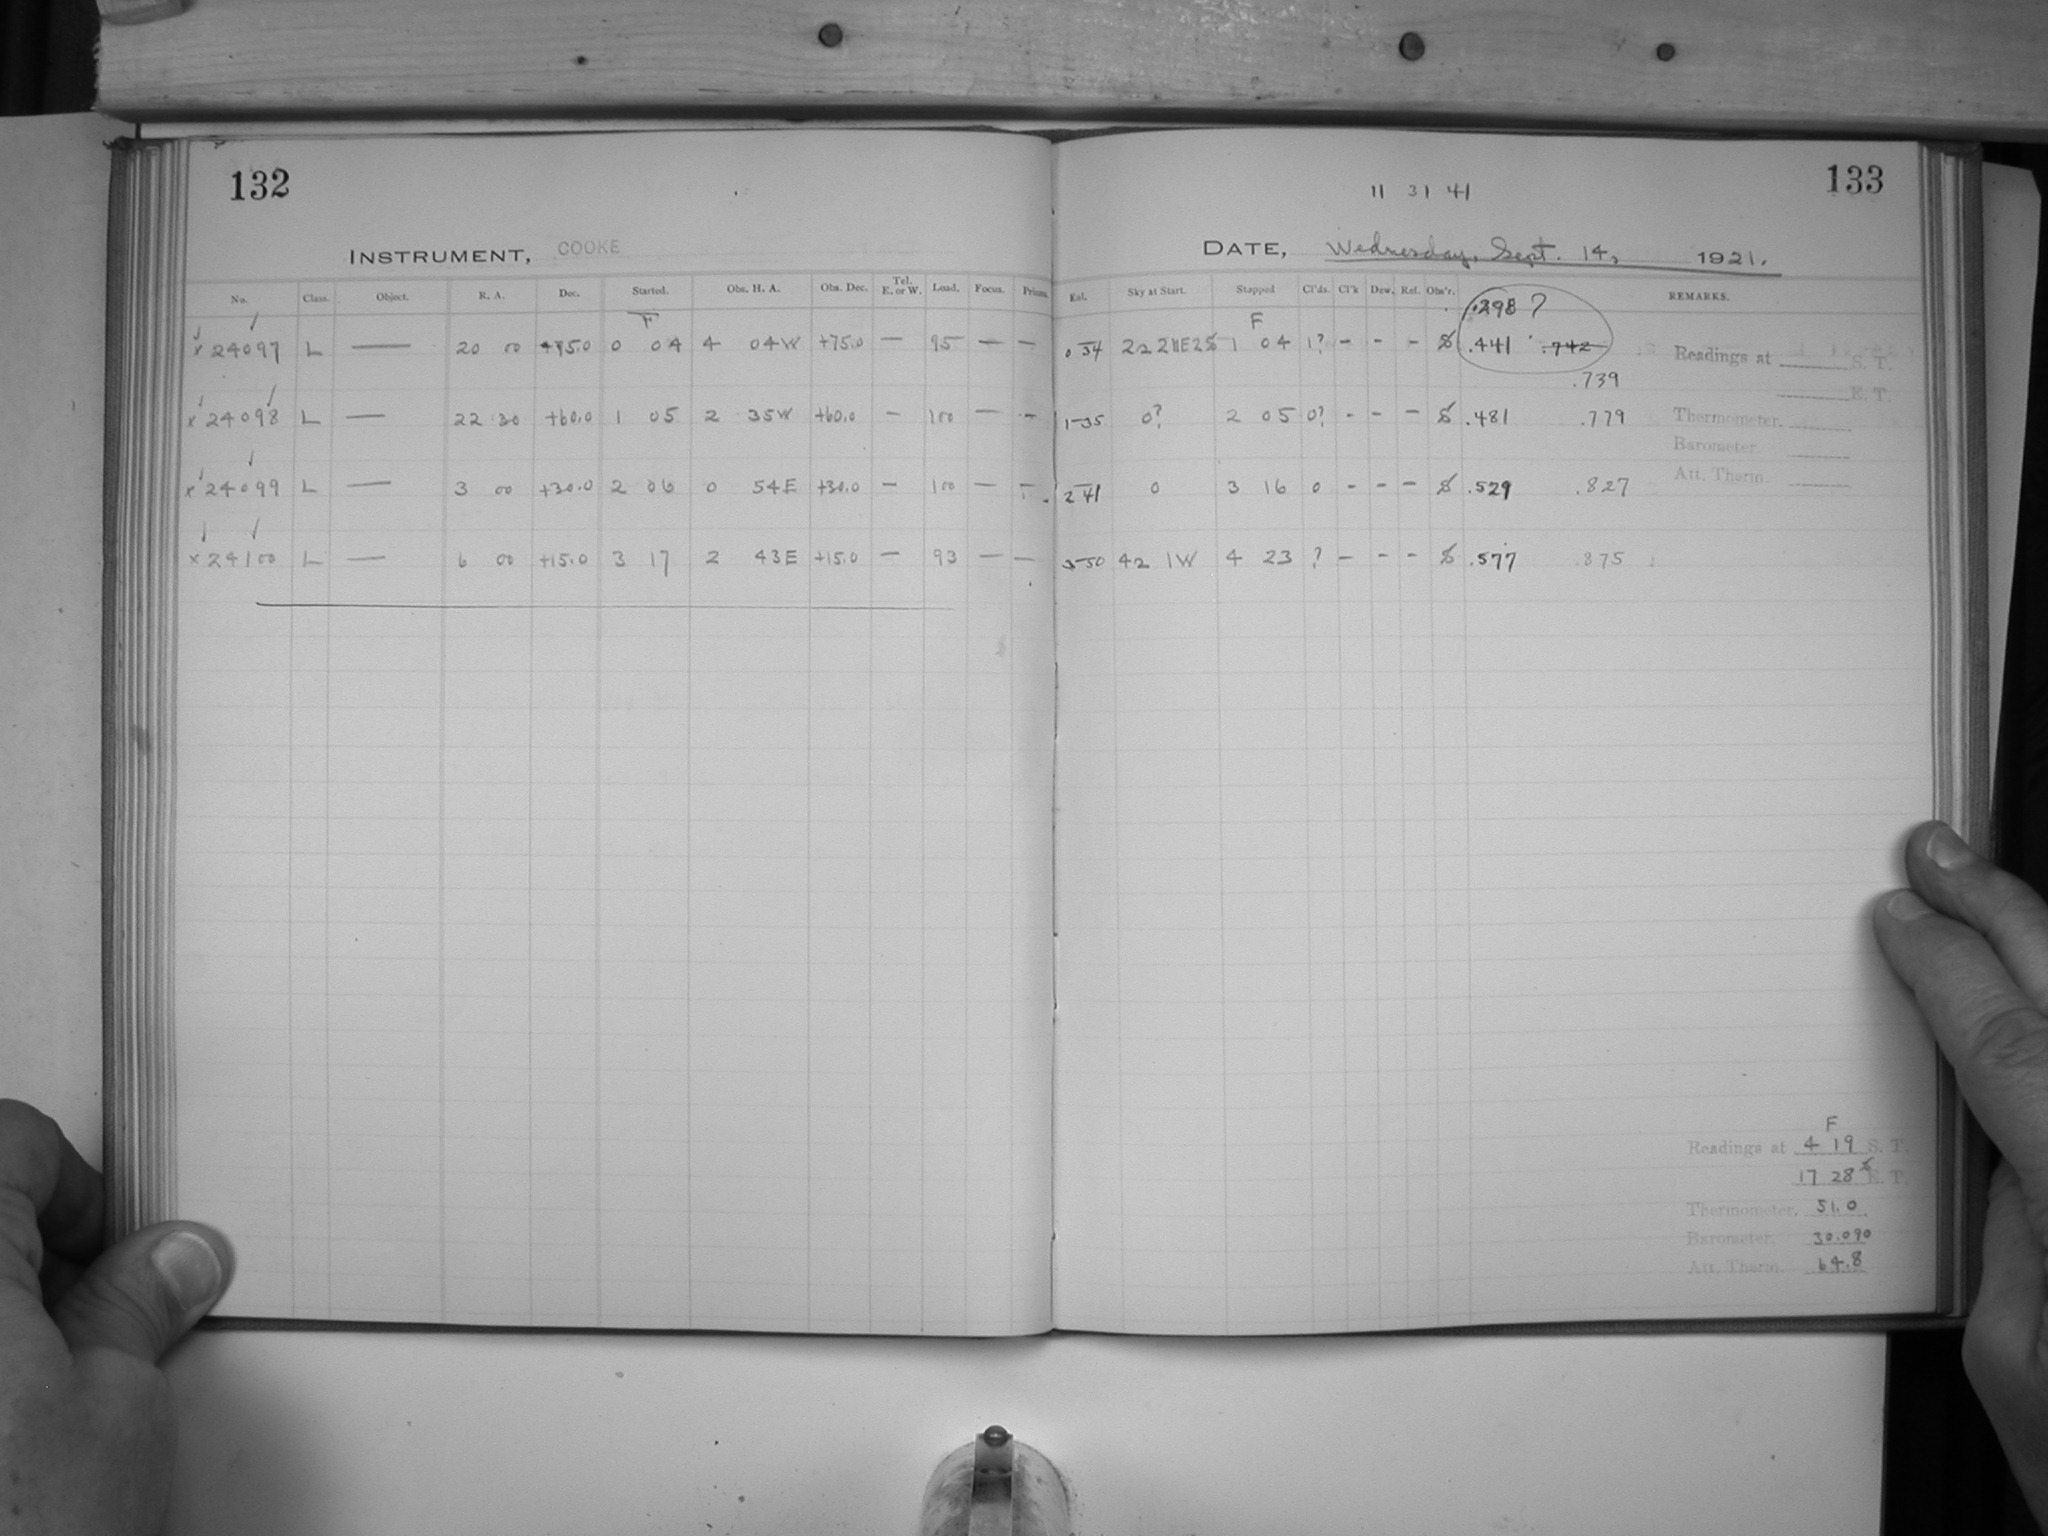 132
INSTRUMENT, COOKE
No. Class. Object. R. A. Dec. Started. Obs. H. A. Obs. Dec. Tel. E. or W. Load. Focus. Prisms.
F
x 24097 L — 20 00 +75.0 0 04 4 04W +75.0 — 95 — —
x 24098 L — 22 30 +60.0 1 05 2 35W +60.0 — 100 — —
x 24099 L — 3 00 +30.0 2 06 0 54E +30.0 — 100 — —
x 24100 L — 6 00 +15.0 3 17 2 43E +15.0 — 93 — —
133
11 31 41
DATE, Wednesday, Sept. 14, 1921.
Sky at Start. Stopped Cl'ds. Cl'k Dew. Ref. Obs'r. REMARKS.
.298 ?
F
0 34 1 04 1? - - - .441 .742
.739
1-35 0? 2 05 0? - - - .481 .779
2 41 0 3 16 0 - - - .529 .827
3-50 42 1W 4 23 ? - - - .577 .875
Readings at S. T.
E. T.
Thermometer.
Barometer.
Att. Therm.
F
Readings at 4 19 S. T.
17 28 E. T.
Thermometer. 51.0
Barometer. 30.090
Att. Therm. 64.8